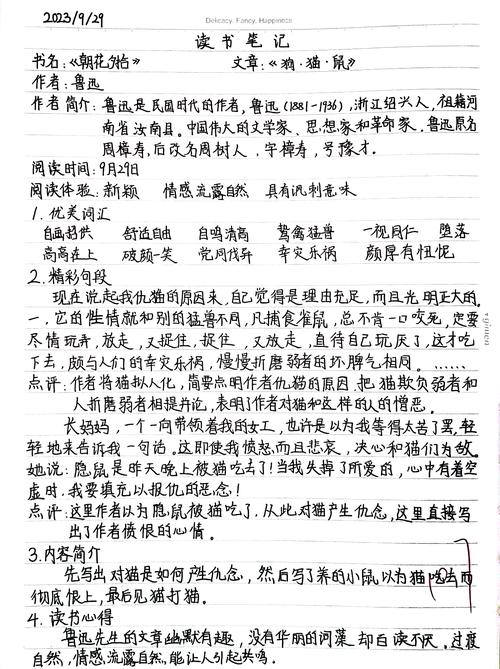 2023/9/29
Delicacy, Fancy, Happiness
读书笔记
书名:《朝花夕拾》 文章:《狗·猫·鼠》
作者:鲁迅
作者简介:鲁迅是民国时代的作者,鲁迅(1881-1936),浙江绍兴人,祖籍河
南省汝南县。中国伟大的文学家、思想家和革命家。鲁迅原名
周樟寿,后改名周树人,字樟寿,号豫才。
阅读时间:9月29日
阅读体验:新颖 情感流露自然 具有讽刺意味
1. 优美词汇
自画招供 舒适自由 自鸣清高 鸷禽猛兽 一视同仁 堕落
高高在上 破颜一笑 党同伐异 幸灾乐祸 颜厚有忸怩
2. 精彩句段
现在说起我仇猫的原因来,自己觉得是理由充足,而且光明正大的。
一,它的性情就和别的猛兽不同,凡捕食雀鼠,总不肯一口咬死,定要
尽情玩弄,放走,又捉住,捉住,又放走,直待自己玩厌了,这才吃
下去,颇与人们的幸灾乐祸,慢慢折磨弱者的坏脾气相同。……
点评:作者将猫拟人化,简要点明作者仇猫的原因.把猫欺负弱者和
人折磨弱者相提并论,表明了作者对猫和这样的人的憎恶。
长妈妈,一个一向带领着我的女工,也许是以为我等得太苦了罢,轻
轻地来告诉我一句话。这即使我愤怒而且悲哀,决心和猫们为敌。
她说:隐鼠是昨天晚上被猫吃去了!当我失掉了所爱的,心中有着空
虚时,我要填充以报仇的恶念!
点评:这里作者以为隐鼠被猫吃了,从此对猫产生仇念,这里直接写
出了作者愤恨的心情。
3.内容简介
先写出对猫是如何产生仇念,然后写了养的小鼠以为猫吃去而
彻底恨上,最后见猫打猫。
4. 读书心得
鲁迅先生的文章幽默有趣,没有华丽的词藻 却百读不厌。过渡
自然,情感流露自然,能让人引起共鸣。